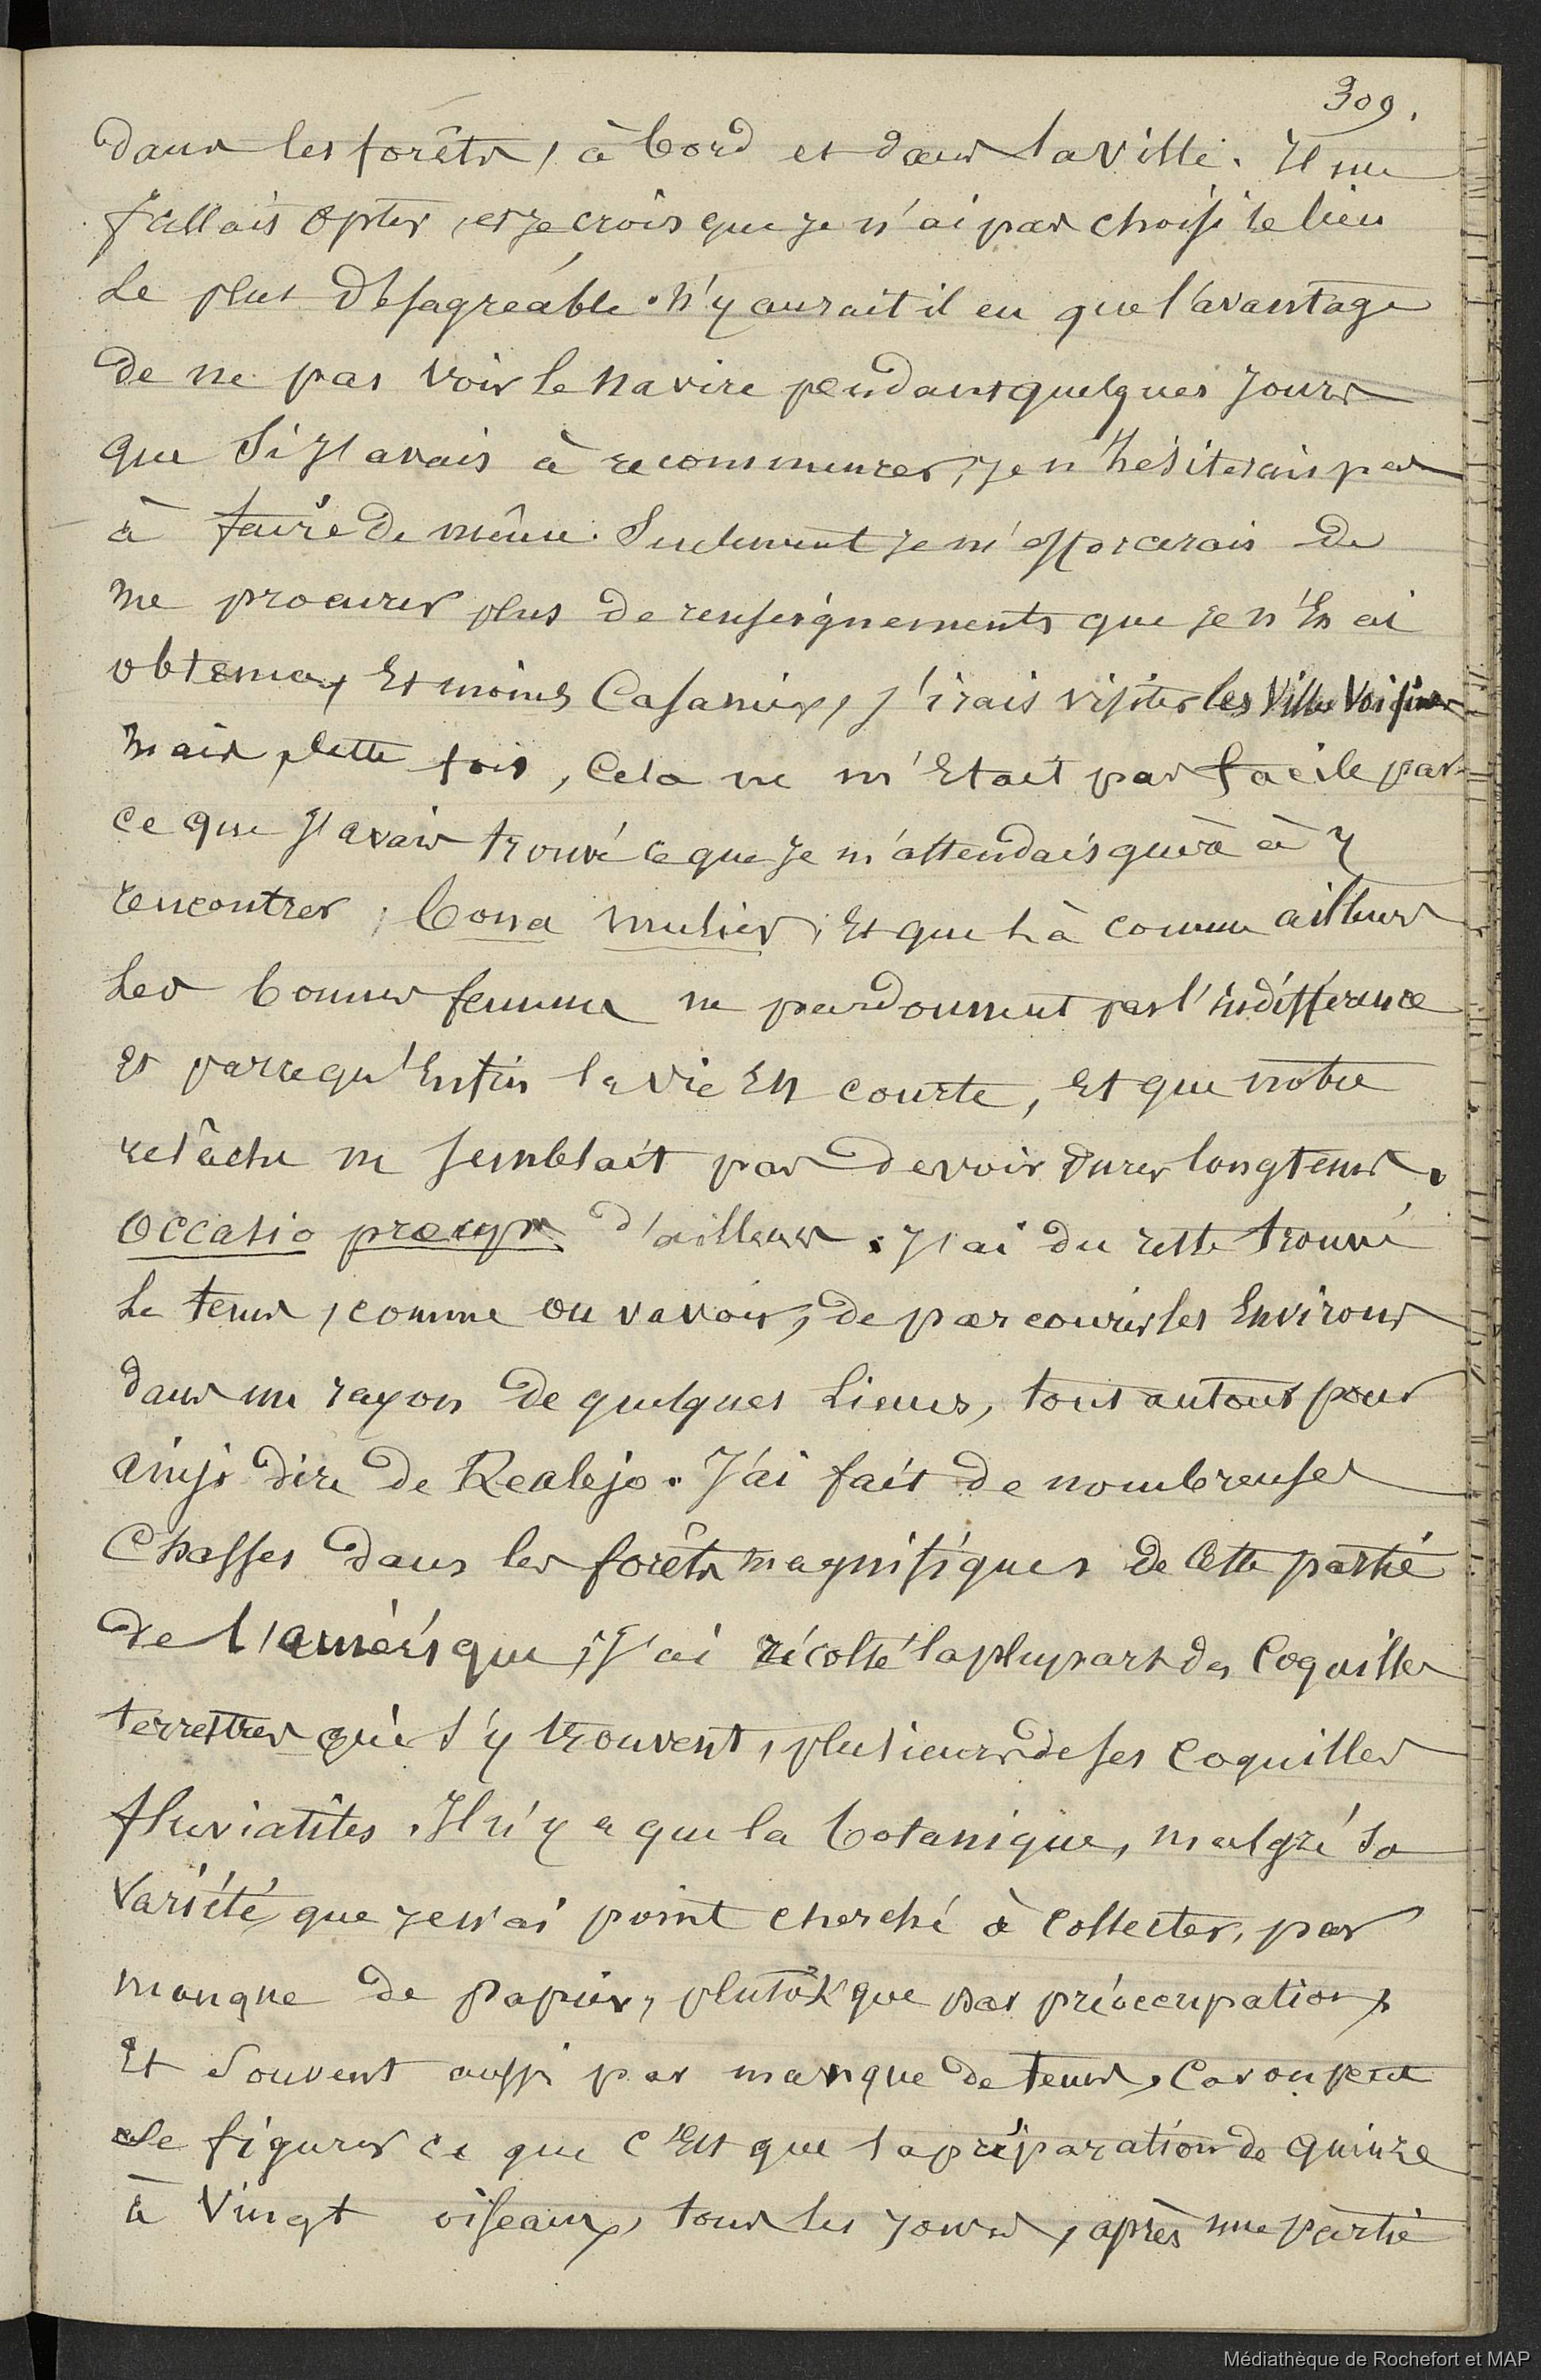 309.
dans les forêts, à bord et dans la ville. Il me
fallais opter, et je crois que je n'ai pas choisi le lieu
le plus désagréable. N'y aurait il eu que l'avantage
de ne pas voir le navire pendant quelques jours
que si j'avais à recommencer, je n'hésiterais pas
à faire de même. Seulement je m'efforcerais de
me procurer plus de renseignements que je n'en ai
obtenu, et moins casanier, j'irais visiter les villes voisines
mais, cette fois, cela ne m'était pas facile par
ce que j'avais trouvé ce que je m'attendais guère à y
rencontrer, bona mulier, et que là comme ailleurs
les bonnes femmes ne pardonnent pas l'indifférence
et parcequ'enfin la vie est courte, et que notre
relâche ne semblait pas devoir durer longtems.
occasio præceps d'ailleurs. J'ai du reste trouvé
le tems, comme on va voir, de parcourir les environs
dans un rayon de quelques lieues, tout autour pour
ainsi dire de Realejo. J'ai fait de nombreuses
chasses dans les forêts magnifiques de cette partie
de l'amérique, j'ai récolté la plupart des coquilles
terrestres qui s'y trouvent, plusieurs de ses coquilles
fluviatiles. Il n'y a que la botanique, malgré sa
variété, que je n'ai point cherché à collecter, par
manque de papier, plutôt que par préoccupation,
et souvent aussi par manque de tems, car on peut
se figurer ce que c'est que la préparation de quinze
à vingt oiseaux, tous les jours, après une partie
Médiathèque de Rochefort et MAP